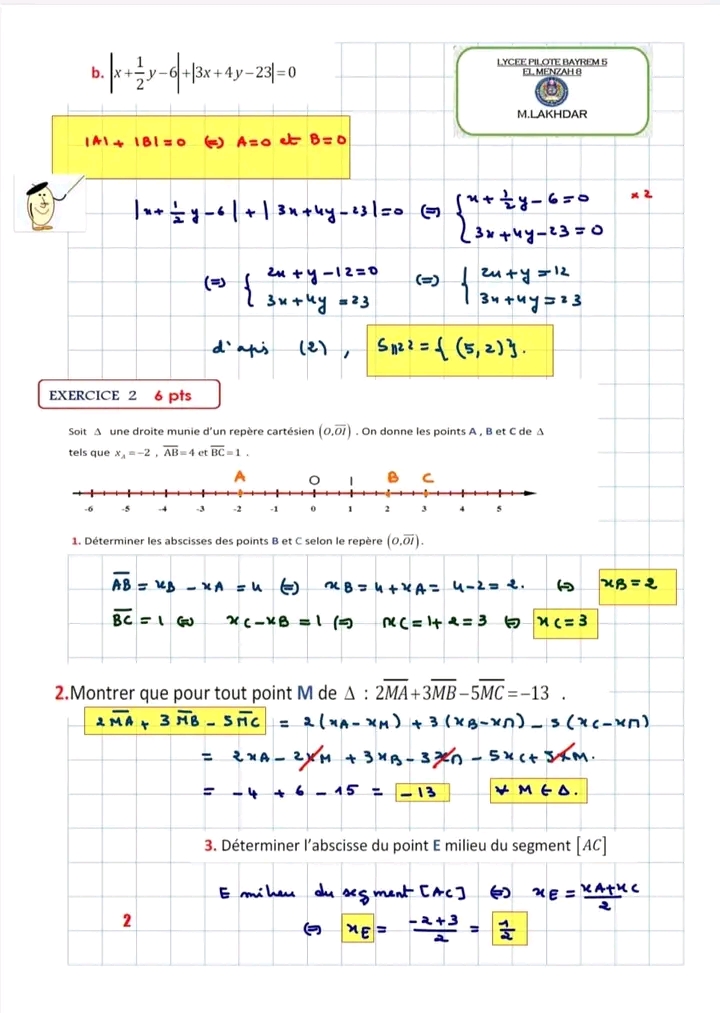 b. |x+1/2y−6|+|3x+4y−23|=0
LYCEE PILOTE BAYREM 5
EL MENZAH 8
M.LAKHDAR
|A| + |B| = 0 (=) A=0 et B=0
|x+1/2y−6|+|3x+4y−23|=0 (=) { x+1/2y−6=0 ×2
3x+4y−23=0
(=) { 2x+y−12=0 (=) { 2x+y=12
3x+4y=23 3x+4y=23
d'apis (2), SIR² = { (5,2)}.
EXERCICE 2 6 pts
Soit Δ une droite munie d'un repère cartésien (O,OI). On donne les points A , B et C de Δ
tels que x_A=−2 , AB=4 et BC=1 .
A O I B C
-6 -5 -4 -3 -2 -1 0 1 2 3 4 5
1. Déterminer les abscisses des points B et C selon le repère (O,OI).
AB = xB − xA = 4 (=) xB = 4+xA = 4−2 = 2. (=) xB = 2
BC = 1 (=) xC−xB = 1 (=) xC = 1+2 = 3 (=) xC = 3
2.Montrer que pour tout point M de Δ : 2MA+3MB−5MC=−13 .
2MA + 3MB − 5MC = 2(xA−xM) + 3(xB−xM) − 5(xC−xM)
= 2xA − 2xM + 3xB − 3xM − 5xC + 5xM.
= −4 + 6 − 15 = −13 ∀ M ∈ Δ.
3. Déterminer l'abscisse du point E milieu du segment [AC]
E milieu du segment [AC] (=) xE = xA+xC/2
2 (=) xE = −2+3/2 = 1/2